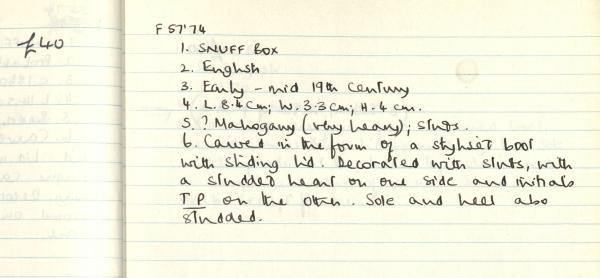 £40
F 57'74
1. SNUFF BOX
2. English
3. Early - mid 19th Century
4. L. 8.4 cm; W. 3.3 cm; H. 4 cm.
5. ? Mahogany (very heavy); studs.
6. Carved in the form of a stylised boot
with sliding lid. Decorated with studs, with
a studded heart on one side and initials
T P on the other. Sole and heel also
studded.